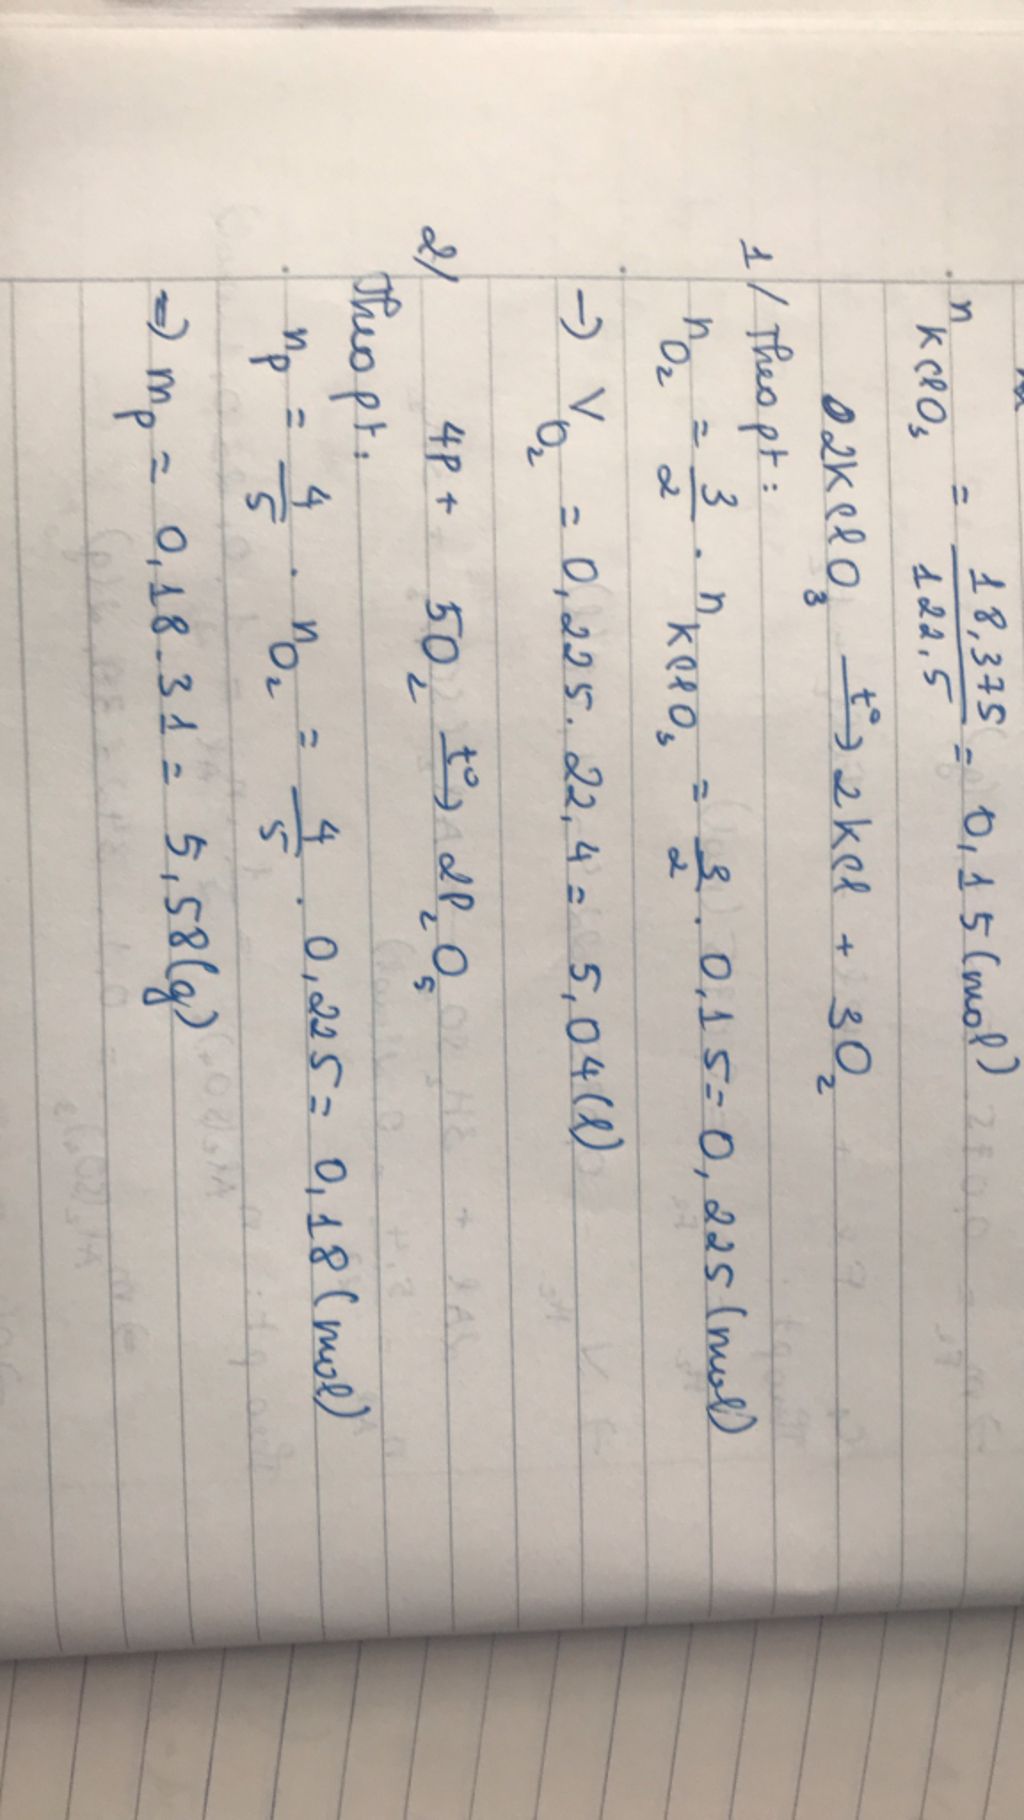 n KClO3 = 18,375 / 122,5 = 0,15 (mol)
2KClO3 t°→ 2KCl + 3O2
1/ Theo pt:
nO2 = 3/2 . nKClO3 = 3/2 . 0,15 = 0,225 (mol)
→ VO2 = 0,225 . 22,4 = 5,04 (l)
2/ 4P + 5O2 t°→ 2P2O5
Theo pt:
nP = 4/5 . nO2 = 4/5 . 0,225 = 0,18 (mol)
⇒ mP = 0,18 . 31 = 5,58 (g)